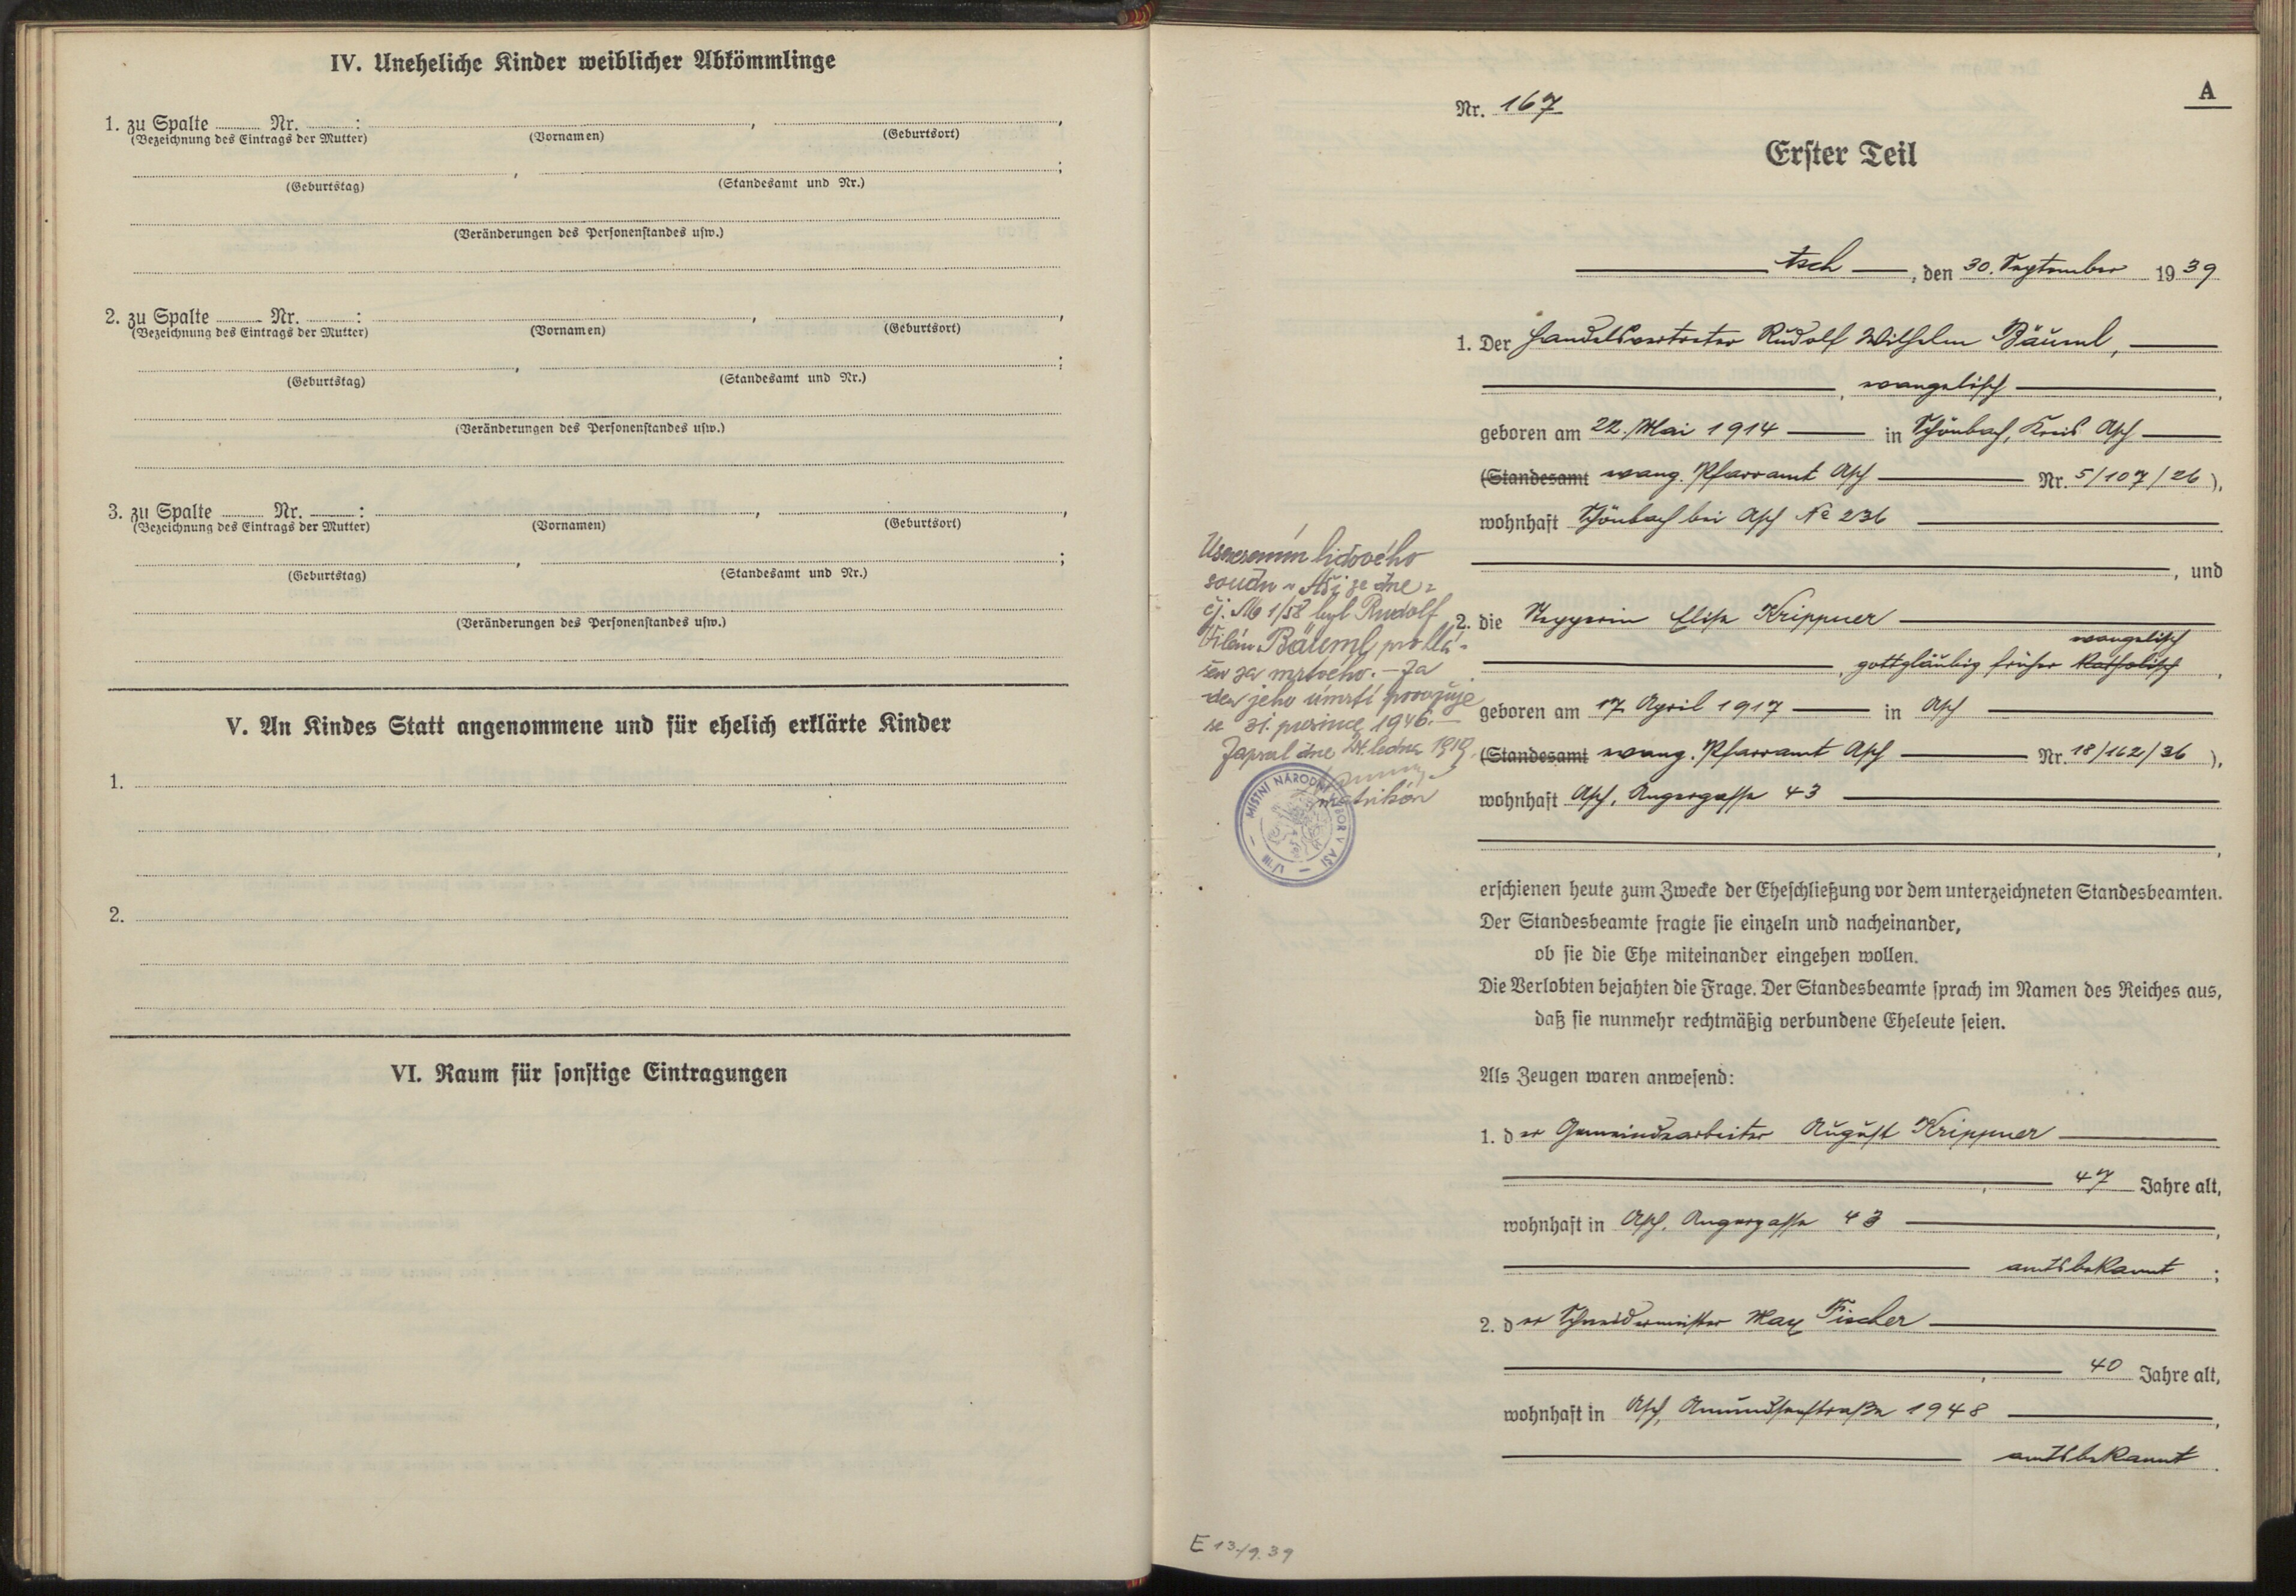 IV. Uneheliche Kinder weiblicher Abkömmlinge
1. zu Spalte Nr. :
(Bezeichnung des Eintrags der Mutter) (Vornamen) (Geburtsort)
(Geburtstag) (Standesamt und Nr.)
(Veränderungen des Personenstandes usw.)
2. zu Spalte Nr. :
(Bezeichnung des Eintrags der Mutter) (Vornamen) (Geburtsort)
(Geburtstag) (Standesamt und Nr.)
(Veränderungen des Personenstandes usw.)
3. zu Spalte Nr. :
(Bezeichnung des Eintrags der Mutter) (Vornamen) (Geburtsort)
(Geburtstag) (Standesamt und Nr.)
(Veränderungen des Personenstandes usw.)
V. An Kindes Statt angenommene und für ehelich erklärte Kinder
1.
2.
VI. Raum für sonstige Eintragungen
A
Nr. 167
Erster Teil
Asch, den 30. September 1939
1. Der Handelsvertreter Rudolf Wilhelm Bäuml,
, evangelisch
geboren am 22. Mai 1914 in Schönbach, Kreis Asch
(Standesamt evang. Pfarramt Asch Nr. 5/107/26),
wohnhaft Schönbach bei Asch № 236
, und
2. die Elise Krippner
evangelisch
, gottgläubig früher katholisch,
geboren am 17. April 1917 in Asch
(Standesamt evang. Pfarramt Asch Nr. 18/162/36),
wohnhaft Asch, Angergasse 43
Usnesením lidového
soudu v Aši ze dne
čj. 1/58 byl Rudolf
Vilém Bäuml prohlá-
šen za mrtvého. – Za
den jeho úmrtí považuje
se 31. prosince 1946.
Zapsal dne 24. ledna
matrikář
MÍSTNÍ NÁRODNÍ VÝBOR V AŠI
erschienen heute zum Zwecke der Eheschließung vor dem unterzeichneten Standesbeamten.
Der Standesbeamte fragte sie einzeln und nacheinander,
ob sie die Ehe miteinander eingehen wollen.
Die Verlobten bejahten die Frage. Der Standesbeamte sprach im Namen des Reiches aus,
daß sie nunmehr rechtmäßig verbundene Eheleute seien.
Als Zeugen waren anwesend:
1. der Gemeindearbeiter August Krippner
, 47 Jahre alt,
wohnhaft in Asch, Angergasse 43,
amtsbekannt;
2. der Schneidermeister Max Fischer
, 40 Jahre alt,
wohnhaft in Asch, Amundsenstraße 1948,
amtsbekannt.
E 13./9.39